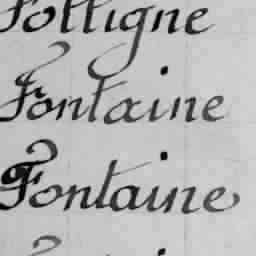 Folligne
Fontaine
Fontaine